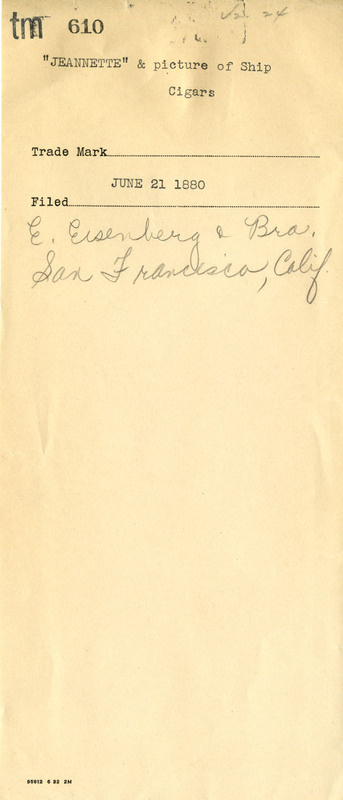 tm 610
"JEANNETTE" & picture of Ship
Cigars
Trade Mark
JUNE 21 1880
Filed
E. Eisenberg & Bro.
San Francisco, Calif.
95612 6 22 2M